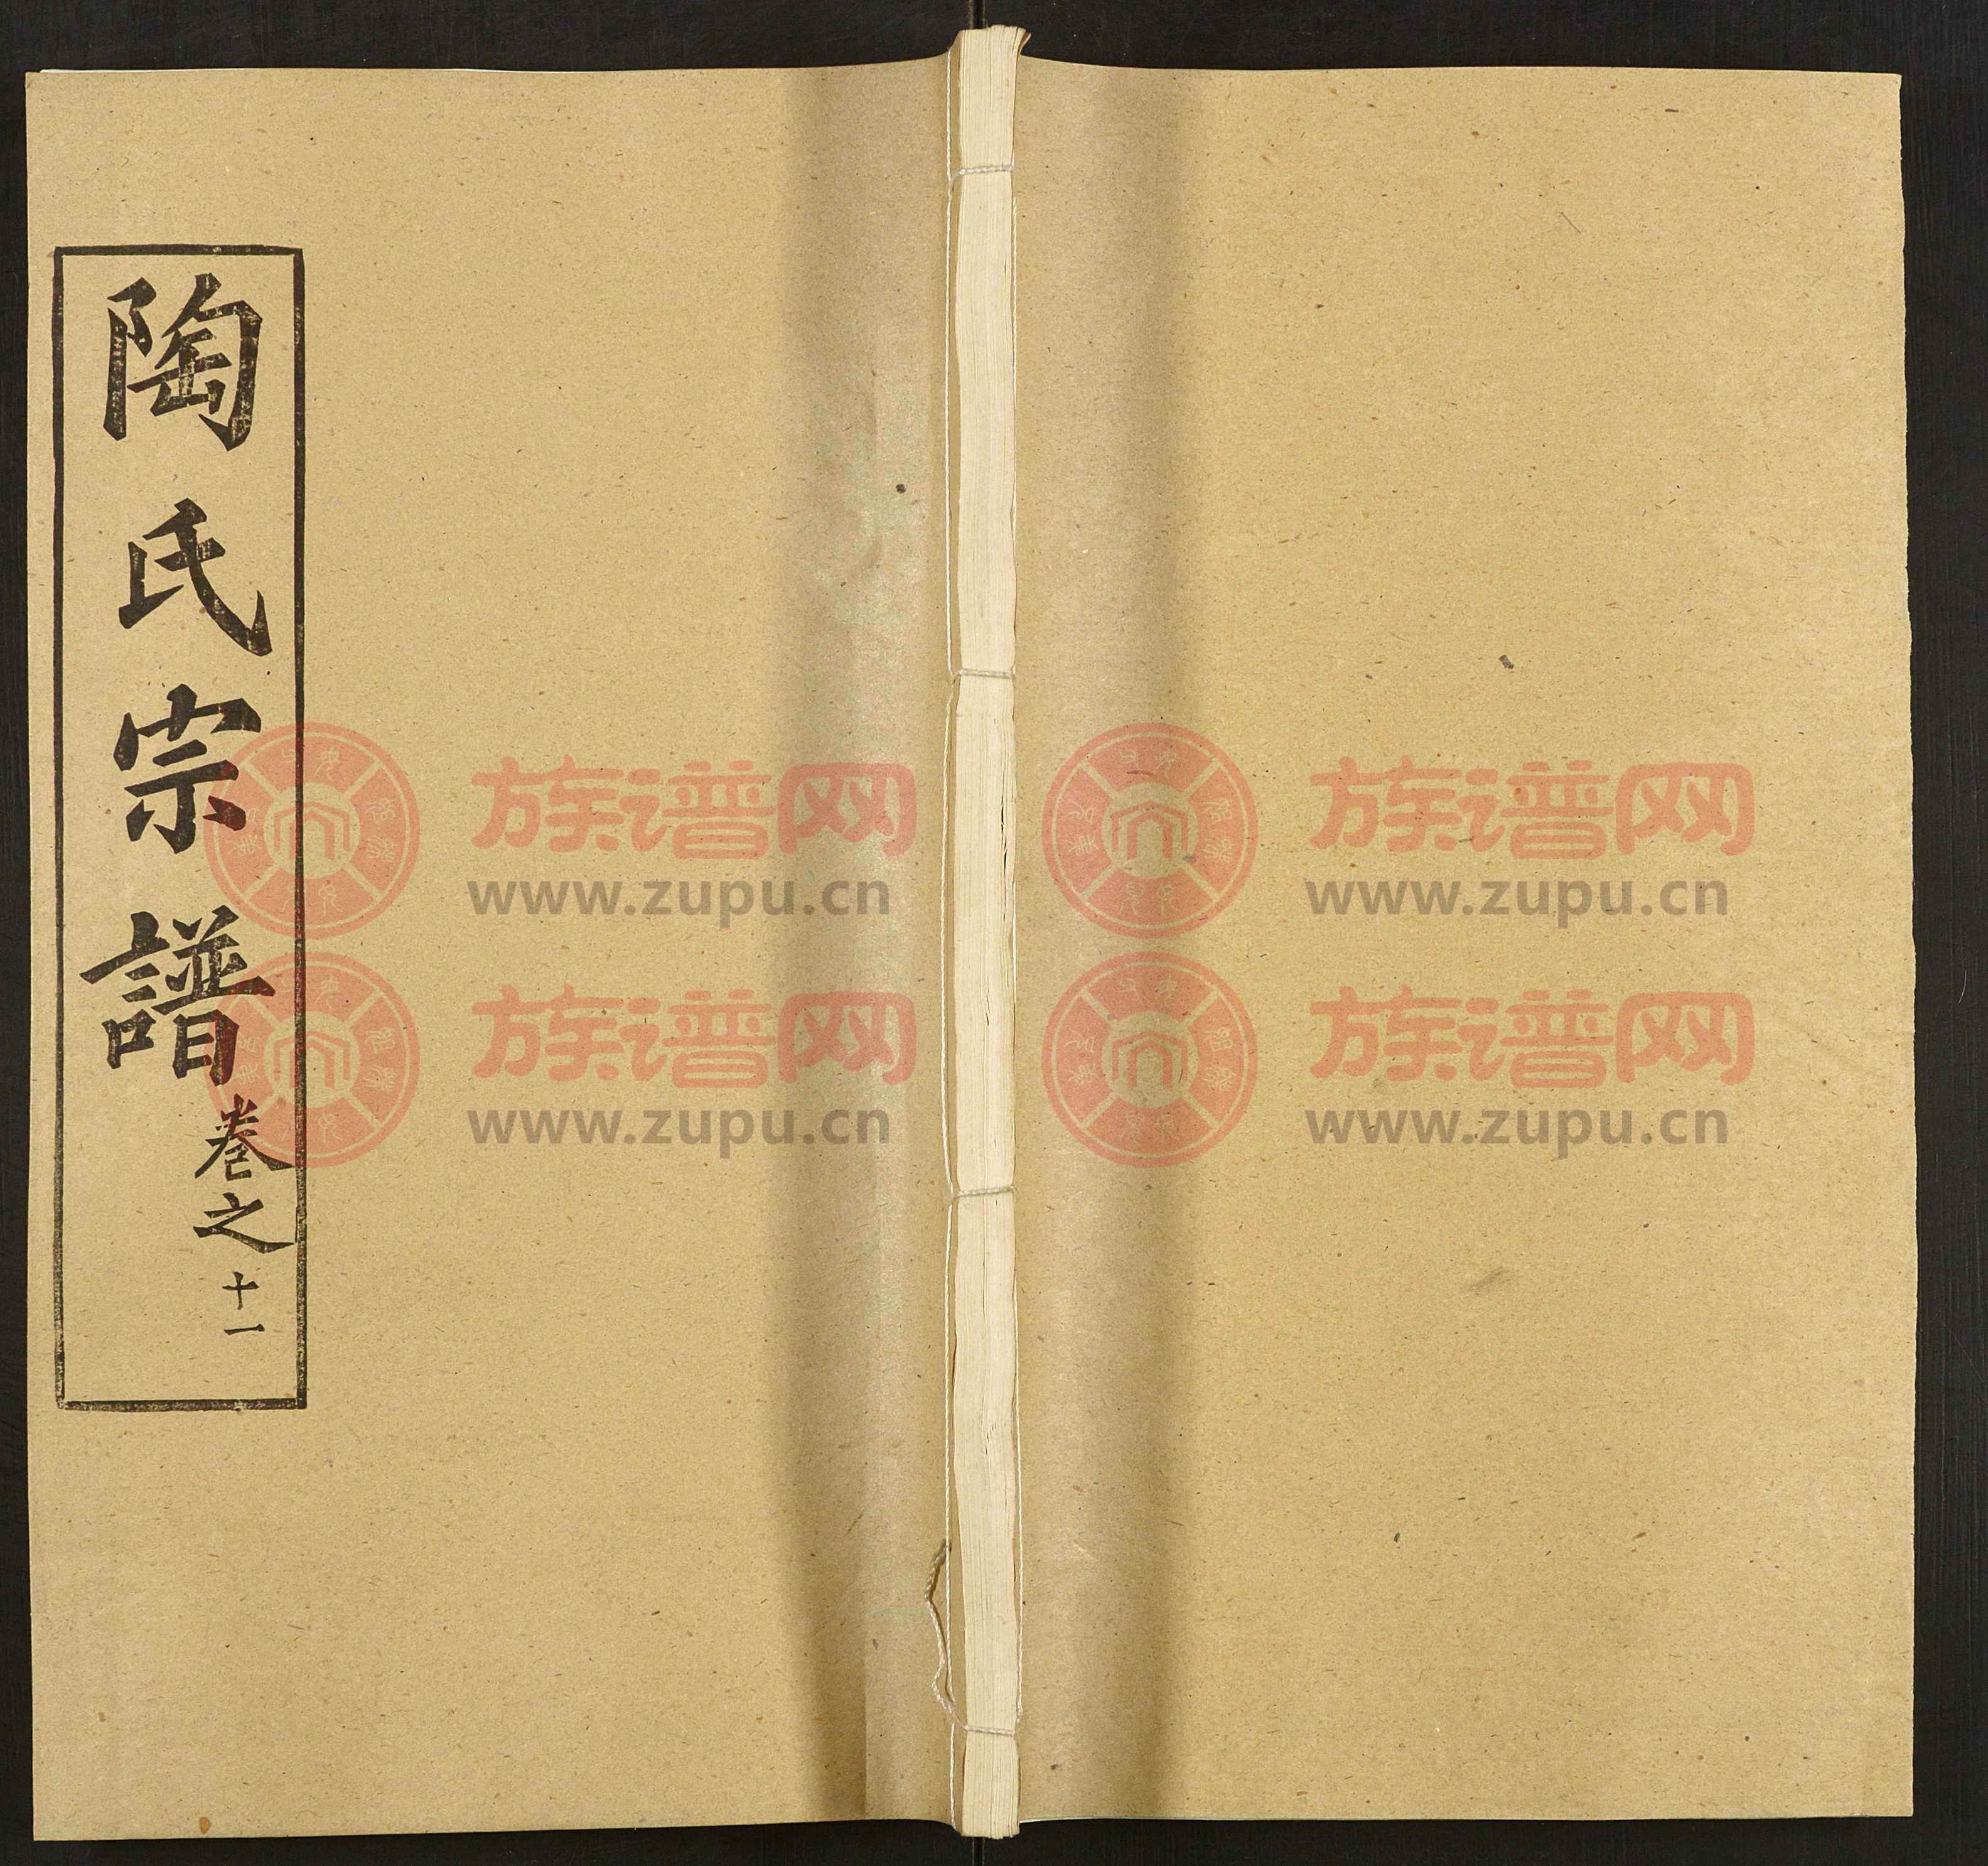 陶氏宗譜
卷之十一
族谱网
www.zupu.cn
族谱网
www.zupu.cn
族谱网
www.zupu.cn
族谱网
www.zupu.cn